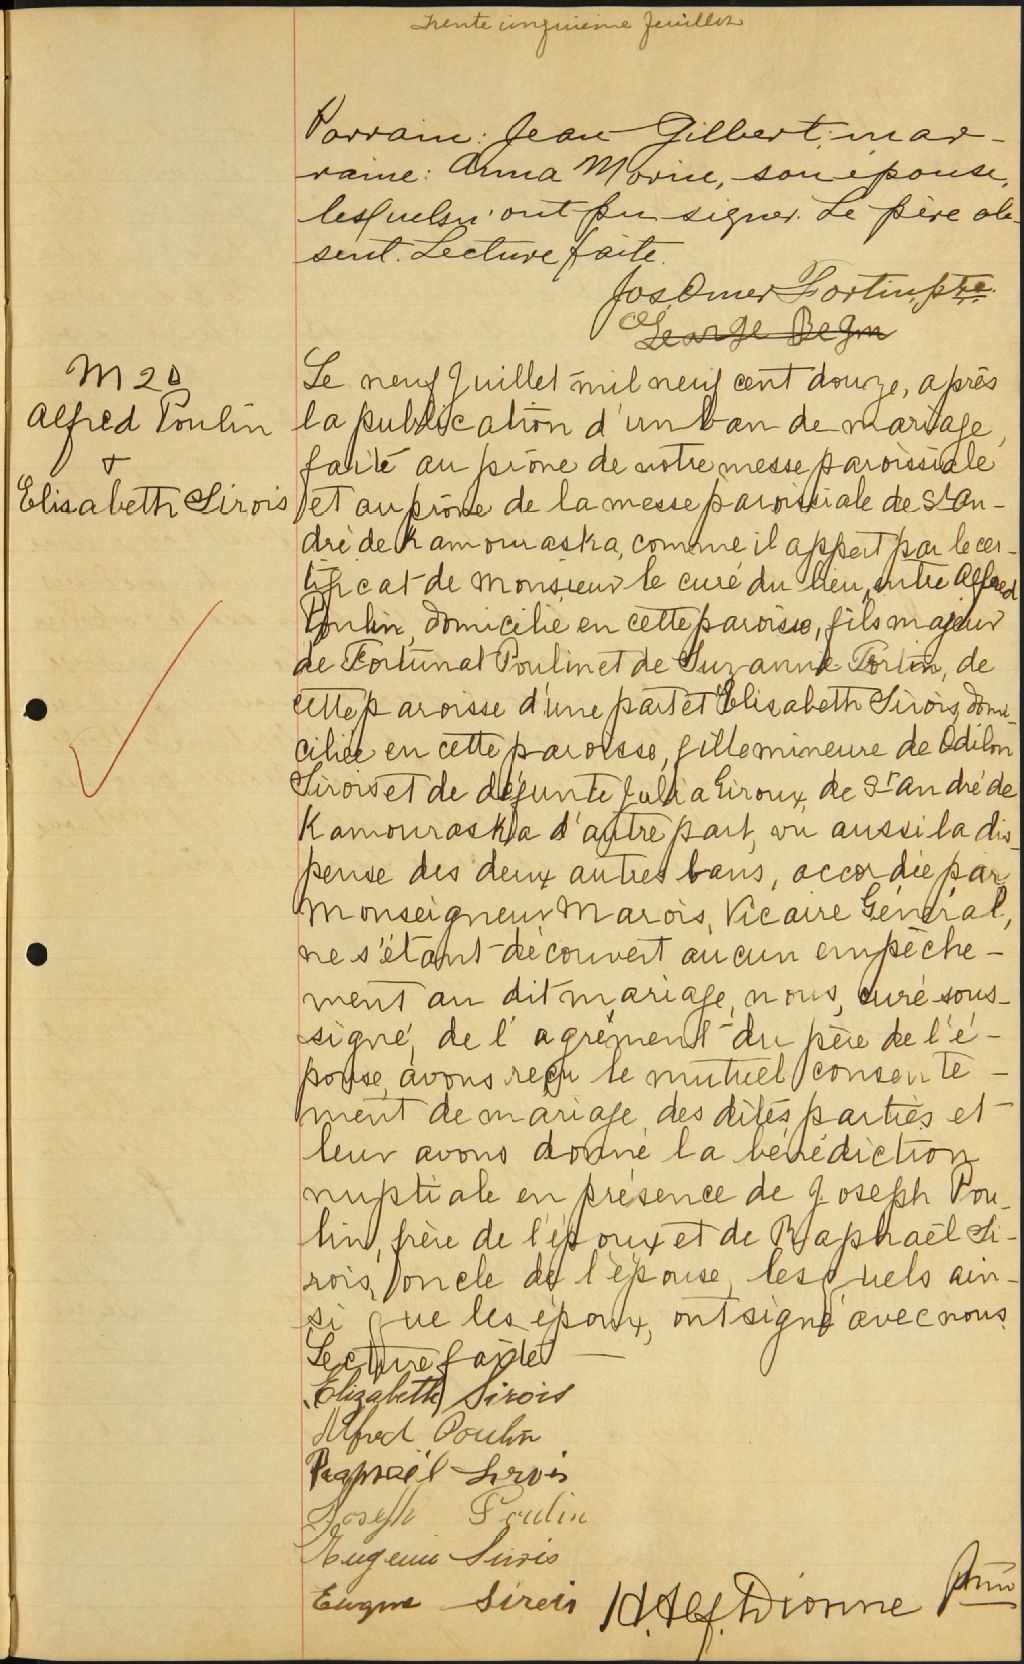 Trente cinquième feuillet
Parrain: Jean Gilbert; mar-
raine: Anna Morin, son épouse,
lesquels n'ont pu signer. Le père ab-
sent. Lecture faite.
Jos. Omer Fortin, ptre.
George Begin
M 20
Alfred Poulin
+
Elisabeth Sirois
Le neuf Juillet mil neuf cent douze, après
la publication d'un ban de mariage,
faite au prône de notre messe paroissiale
et au prône de la messe paroissiale de St An-
dré de Kamouraska, comme il appert par le cer-
tificat de Monsieur le curé du lieu, entre Alfred
Poulin, domicilié en cette paroisse, fils majeur
de Fortunat Poulin et de Suzanne Fortin, de
cette paroisse d'une part et Elisabeth Sirois, domi-
ciliée en cette paroisse, fille mineure de Odilon
Sirois et de défunte Julia Giroux, de St André de
Kamouraska d'autre part, vu aussi la dis-
pense des deux autres bans, accordée par
Monseigneur Marois, Vicaire Général,
ne s'étant découvert aucun empêche-
ment au dit mariage, nous, curé sous-
signé, de l'agrément du père de l'é-
pouse, avons reçu le mutuel consente-
ment de mariage des dites parties et
leur avons donné la bénédiction
nuptiale en présence de Joseph Pou-
lin, frère de l'époux et de Raphaël Si-
rois, oncle de l'épouse, lesquels ain-
si que les époux, ont signé avec nous.
Lecture faite —
Elizabeth Sirois
Alfred Poulin
Raphaël Sirois
Joseph Poulin
Eugenie Sirois
Eugene Sirois
H. Alf. Dionne